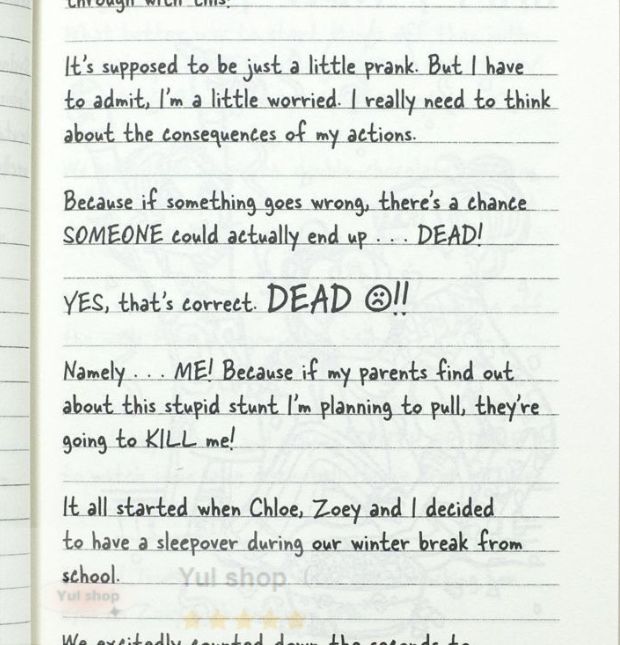 through with this!
It's supposed to be just a little prank. But I have
to admit, I'm a little worried. I really need to think
about the consequences of my actions.
Because if something goes wrong, there's a chance
SOMEONE could actually end up . . . DEAD!
YES, that's correct. DEAD ☹!!
Namely . . . ME! Because if my parents find out
about this stupid stunt I'm planning to pull, they're
going to KILL me!
It all started when Chloe, Zoey and I decided
to have a sleepover during our winter break from
school.
Yul shop
Yul shop
We excitedly counted down the seconds to